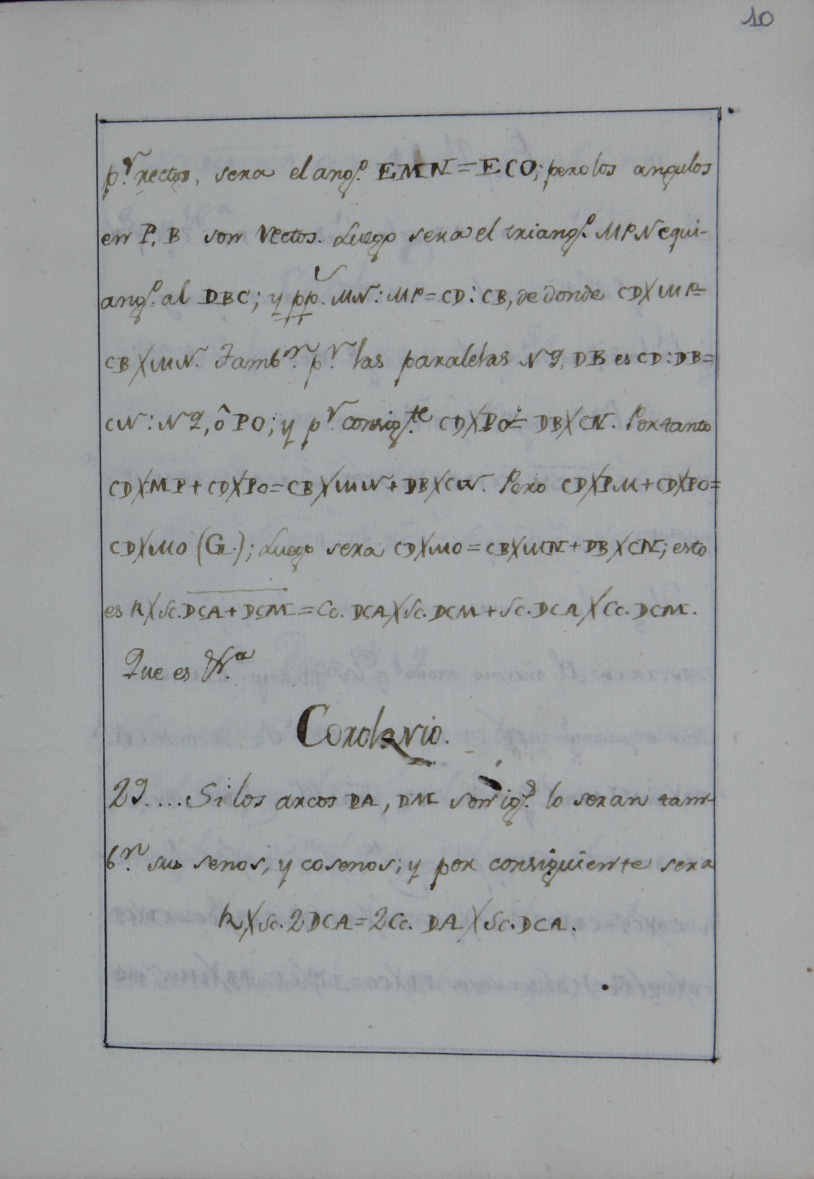 10
p.r rectos, sera el ang.o EMN=ECO; pero los angulos
en P, B son Rectos. Luego sera el triang.o MPN equi-
ang.o al DBC; y pp. MN:MP=CD:CB, de donde CD X MP=
CB X MN. Tamb.n p.r las paralelas NQ, DB es CD:DB=
CN:NQ, ô PO; y p.r consig.te CD X PO= DB X CN. Por tanto
CD X MP + CD X PO = CB X MN + DB X CN. Pero CD X PM + CD X PO=
CD X MO (G.); Luego sera CD X MO = CB X MN + DB X CN; esto
es R X Sc. DCA + DCM = Cc. DCA X Sc. DCM + Sc. DCA X Cc. DCM.
Que es
Corolario.
29.... Si los arcos DA, DM son ig.s lo seran tam-
b.n sus senos, y cosenos; y por consiguiente sera
R X Sc. 2 DCA = 2 Cc. DA X Sc. DCA.